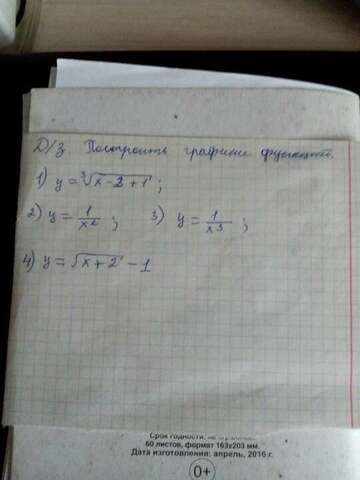 Д/З. Построить графики функций.
1) y = ∛(x-2+1) ;
2) y = 1/x² ; 3) y = 1/x³ ;
4) y = √(x+2) - 1
60 листов, формат 163х203 мм.
Дата изготовления: апрель, 2016 г.
0+